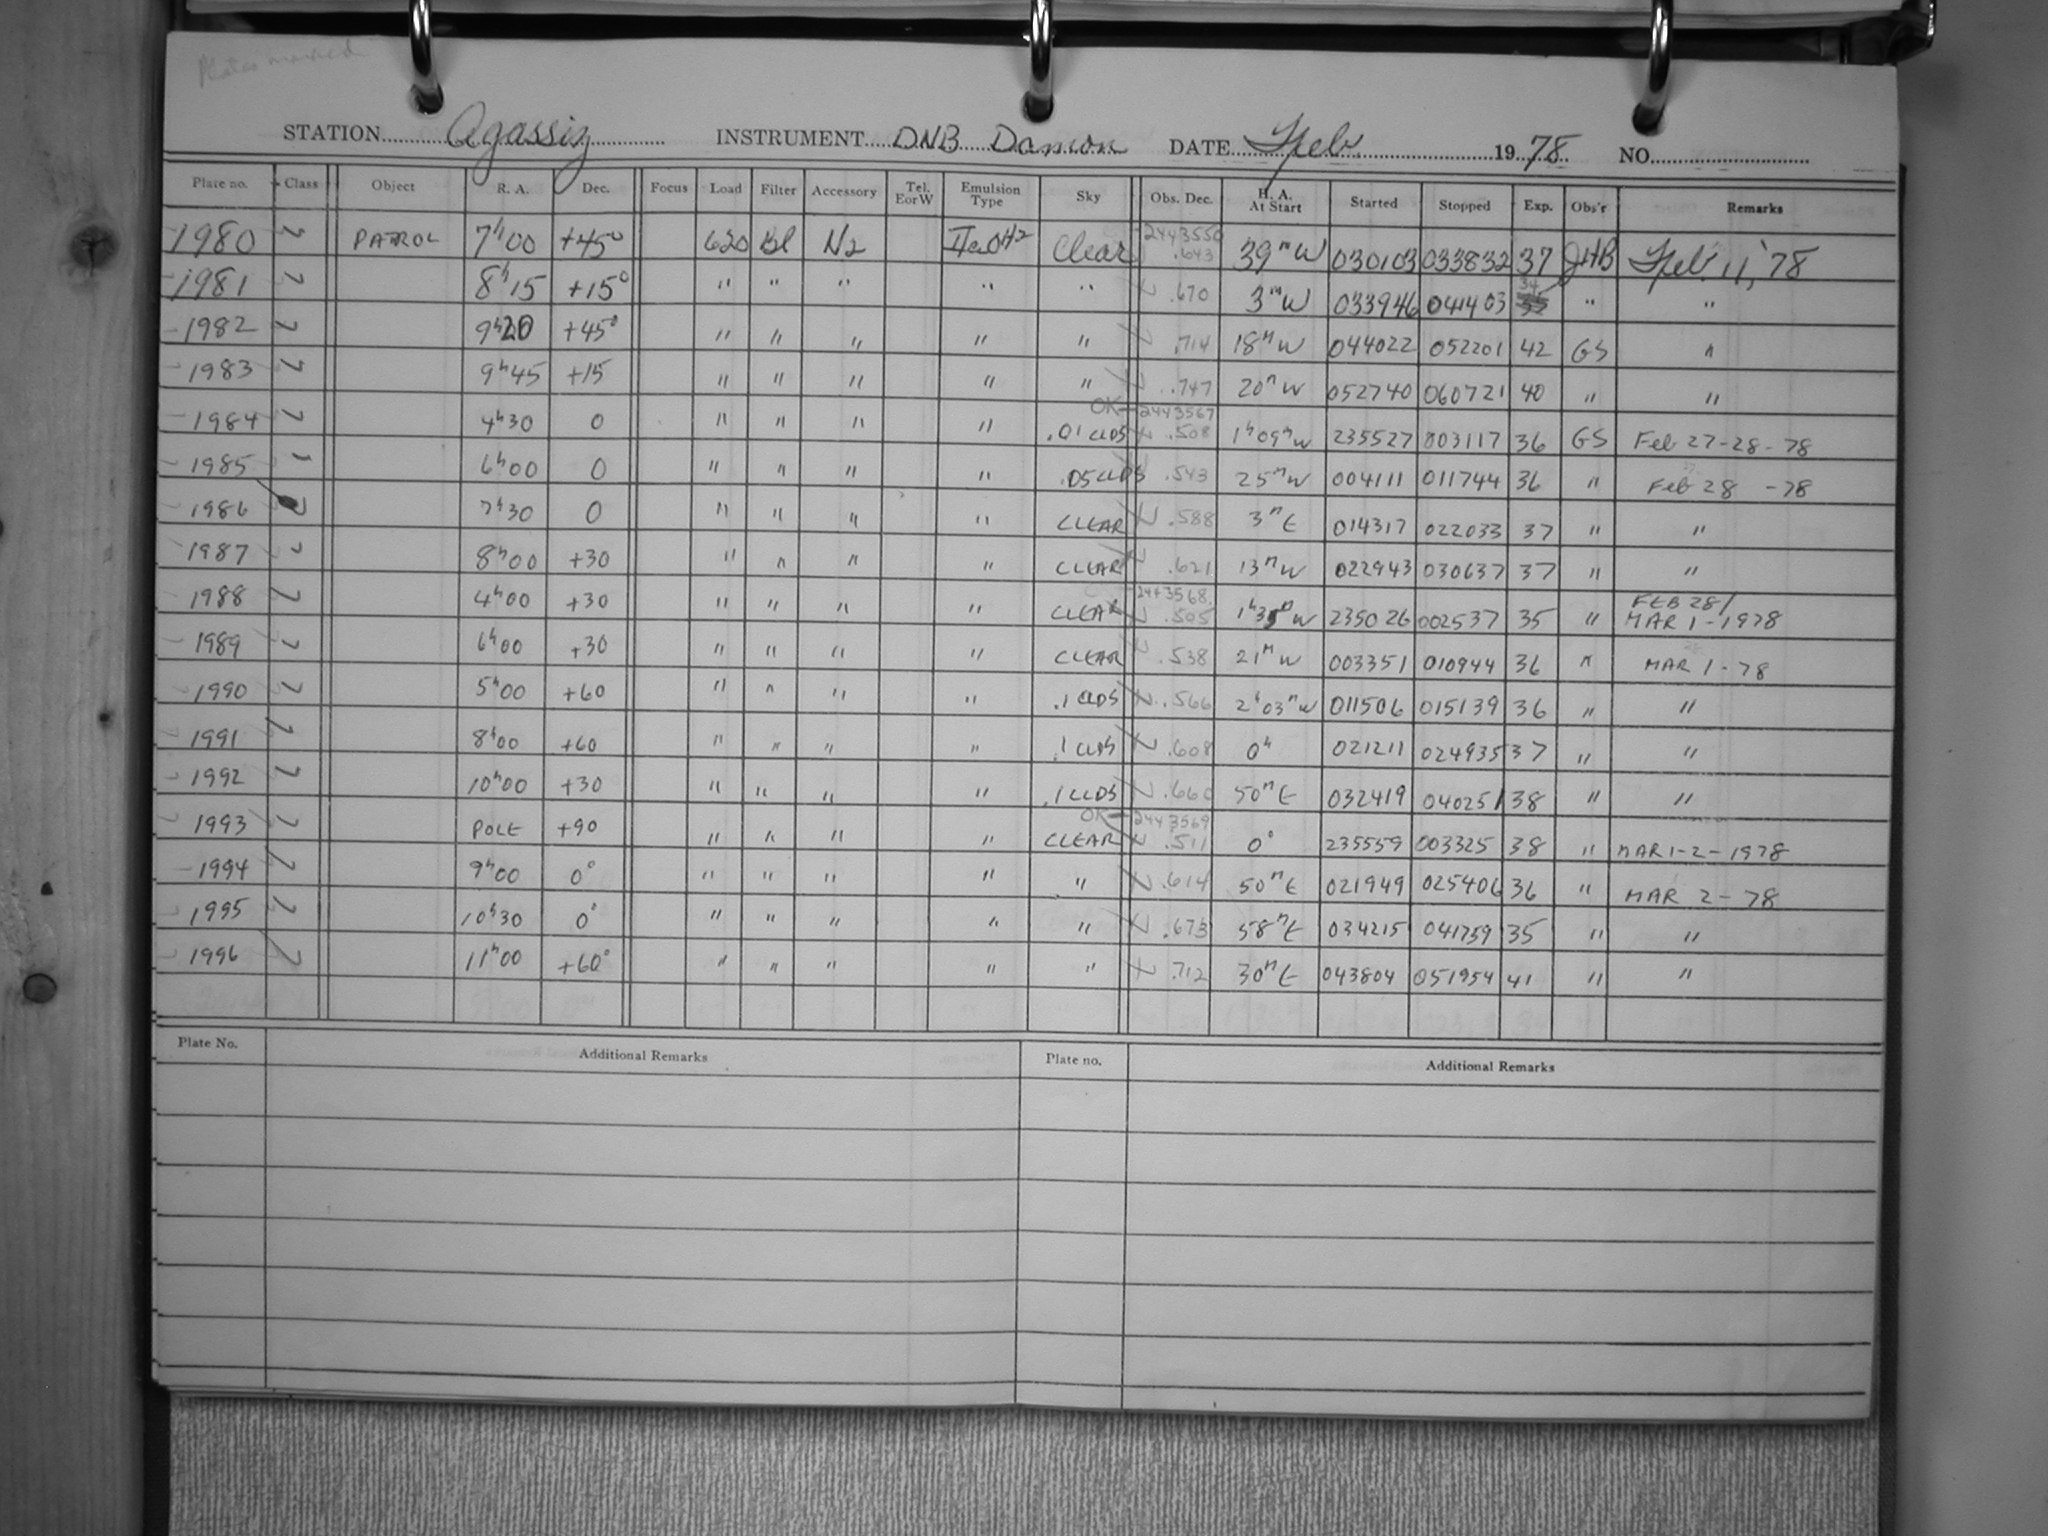 Plates
STATION Agassiz INSTRUMENT DNB Damon DATE Feb 1978 NO.
Plate no. Class Object R. A. Dec. Focus Load Filter Accessory Tel. EorW Emulsion Type Sky Obs. Dec. H. A. At Start Started Stopped Exp. Obs'r Remarks
1980 7 PATROL 7h00 +45° 620 Bl N2 IIaOH2 Clear 2443550 .643 39mW 030103 033832 37 JHB Feb 11, '78
1981 7 8h15 +15° " " " " " .670 3mW 033946 041403 34 " "
1982 7 9h20 +45° " " " " " .714 18mW 044022 052201 42 GS "
1983 7 9h45 +15 " " " " " .747 20mW 052740 060721 40 " "
1984 7 4h30 0 " " " " OK .01 CLDS 2443567 .508 1h09mW 235527 003117 36 GS Feb 27-28-78
1985 6h00 0 " " " " .05 CLDS .543 25mW 004111 011744 36 " Feb 28 -78
1986 7 7h30 0 " " " " CLEAR .588 3mE 014317 022033 37 " "
1987 7 8h00 +30 " " " " CLEAR .621 13mW 022943 030637 37 " "
1988 7 4h00 +30 " " " " CLEAR 2443568 .505 1h35mW 235026 002537 35 " FEB 28/ MAR 1-1978
1989 7 6h00 +30 " " " " CLEAR .538 21mW 003351 010944 36 " MAR 1-78
1990 7 5h00 +60 " " " " .1 CLDS .566 2h03mW 011506 015139 36 " "
1991 7 8h00 +60 " " " " .1 CLDS .608 0h 021211 024935 37 " "
1992 7 10h00 +30 " " " " .1 CLDS .660 50mE 032419 040251 38 " "
1993 7 POLE +90 " " " " OK CLEAR 2443569 .511 0° 235559 003325 38 " MAR 1-2-1978
1994 7 9h00 0° " " " " " .614 50mE 021949 025406 36 " MAR 2-78
1995 7 10h30 0° " " " " " .673 58mE 034215 041759 35 " "
1996 7 11h00 +60° " " " " " .712 30mE 043804 051954 41 " "
Plate No. Additional Remarks Plate no. Additional Remarks